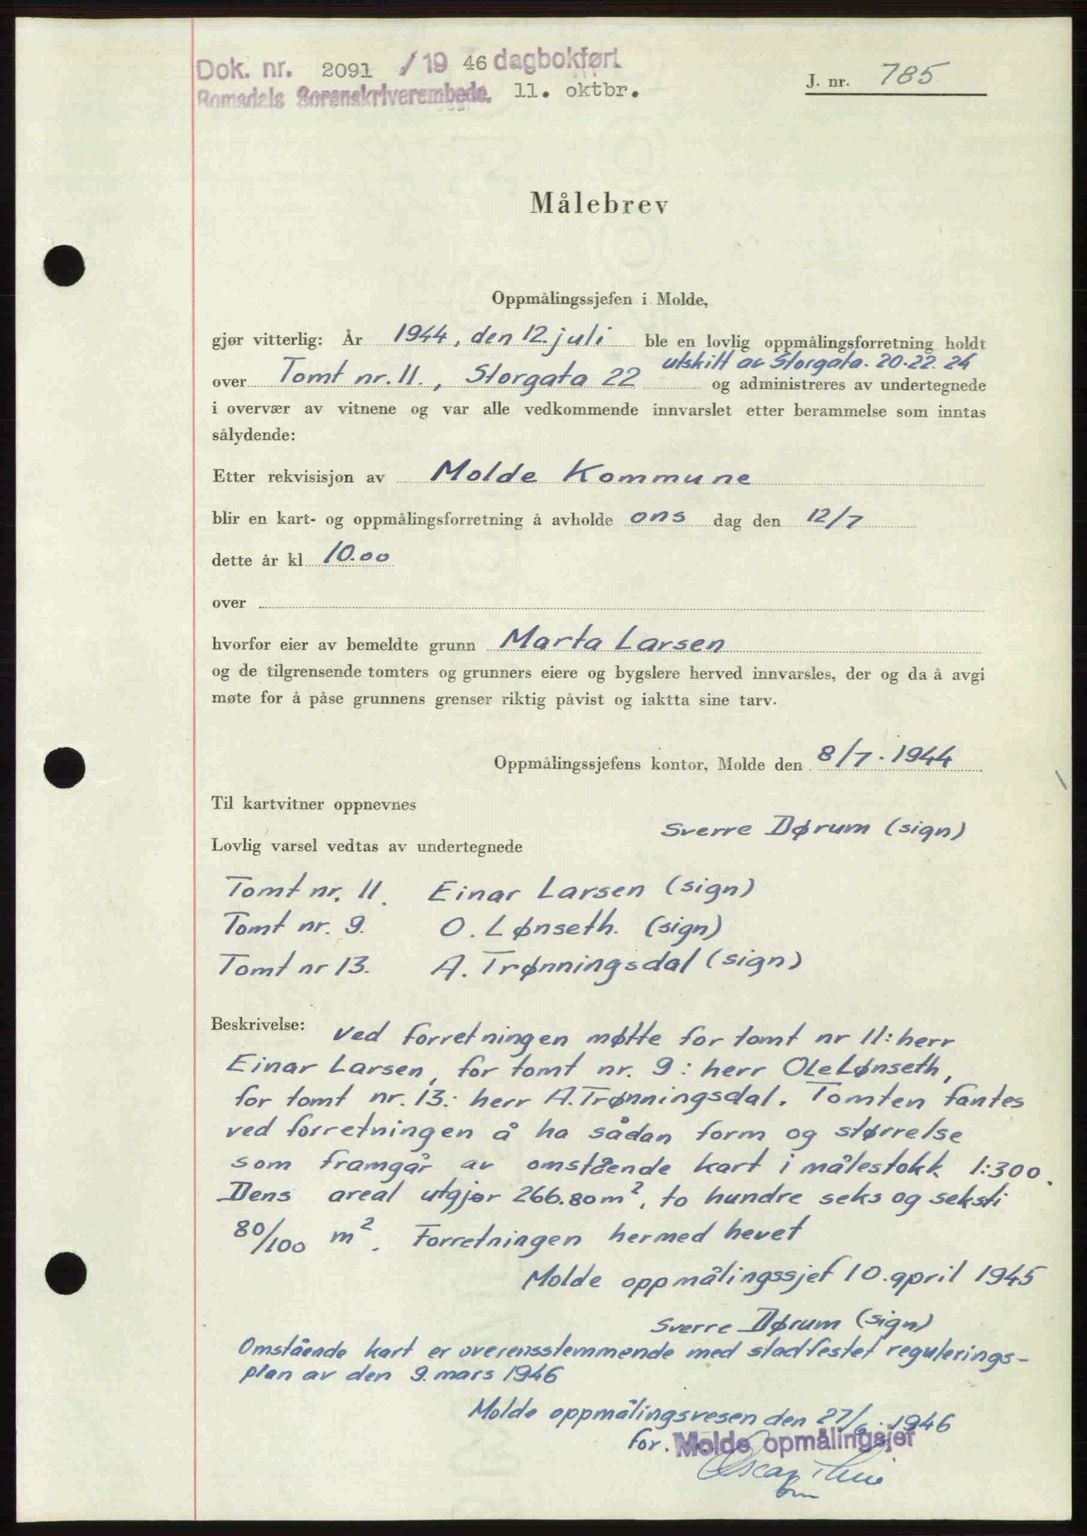 Dok. nr. 2091 / 19 46 dagbokført
Romsdals Sorenskriverembede. 11. oktbr.
J. nr. 785
Målebrev
Oppmålingssjefen i Molde,
gjør vitterlig: År 1944, den 12. juli ble en lovlig oppmålingsforretning holdt
utskilt av Storgata. 20-22. 24
over Tomt nr. 11., Storgata 22 og administreres av undertegnede
i overvær av vitnene og var alle vedkommende innvarslet etter berammelse som inntas
sålydende:
Etter rekvisisjon av Molde Kommune
blir en kart- og oppmålingsforretning å avholde ons dag den 12/7
dette år kl 10.00
over
hvorfor eier av bemeldte grunn Marta Larsen
og de tilgrensende tomters og grunners eiere og bygslere herved innvarsles, der og da å avgi
møte for å påse grunnens grenser riktig påvist og iaktta sine tarv.
Oppmålingssjefens kontor, Molde den 8/7. 1944
Til kartvitner oppnevnes
Sverre Dørum (sign)
Lovlig varsel vedtas av undertegnede
Tomt nr. 11. Einar Larsen (sign)
Tomt nr. 9. O. Lønseth. (sign)
Tomt nr 13. A. Trønningsdal (sign)
Beskrivelse: Ved forretningen møtte for tomt nr 11: herr
Einar Larsen, for tomt nr. 9: herr Ole Lønseth,
for tomt nr. 13: herr A. Trønningsdal. Tomten fantes
ved forretningen å ha sådan form og størrelse
som framgår av omstående kart i målestokk 1:300.
Dens areal utgjør 266.80 m², to hundre seks og seksti
80/100 m². Forretningen hermed hevet
Molde oppmålingssjef 10. april 1945
Sverre Dørum (sign)
Omstående kart er overensstemmende med stadfestet regulerings-
plan av den 9. mars 1946
Molde oppmålingsvesen den 27/6. 1946
for. Molde opmålingsjef
Oscar